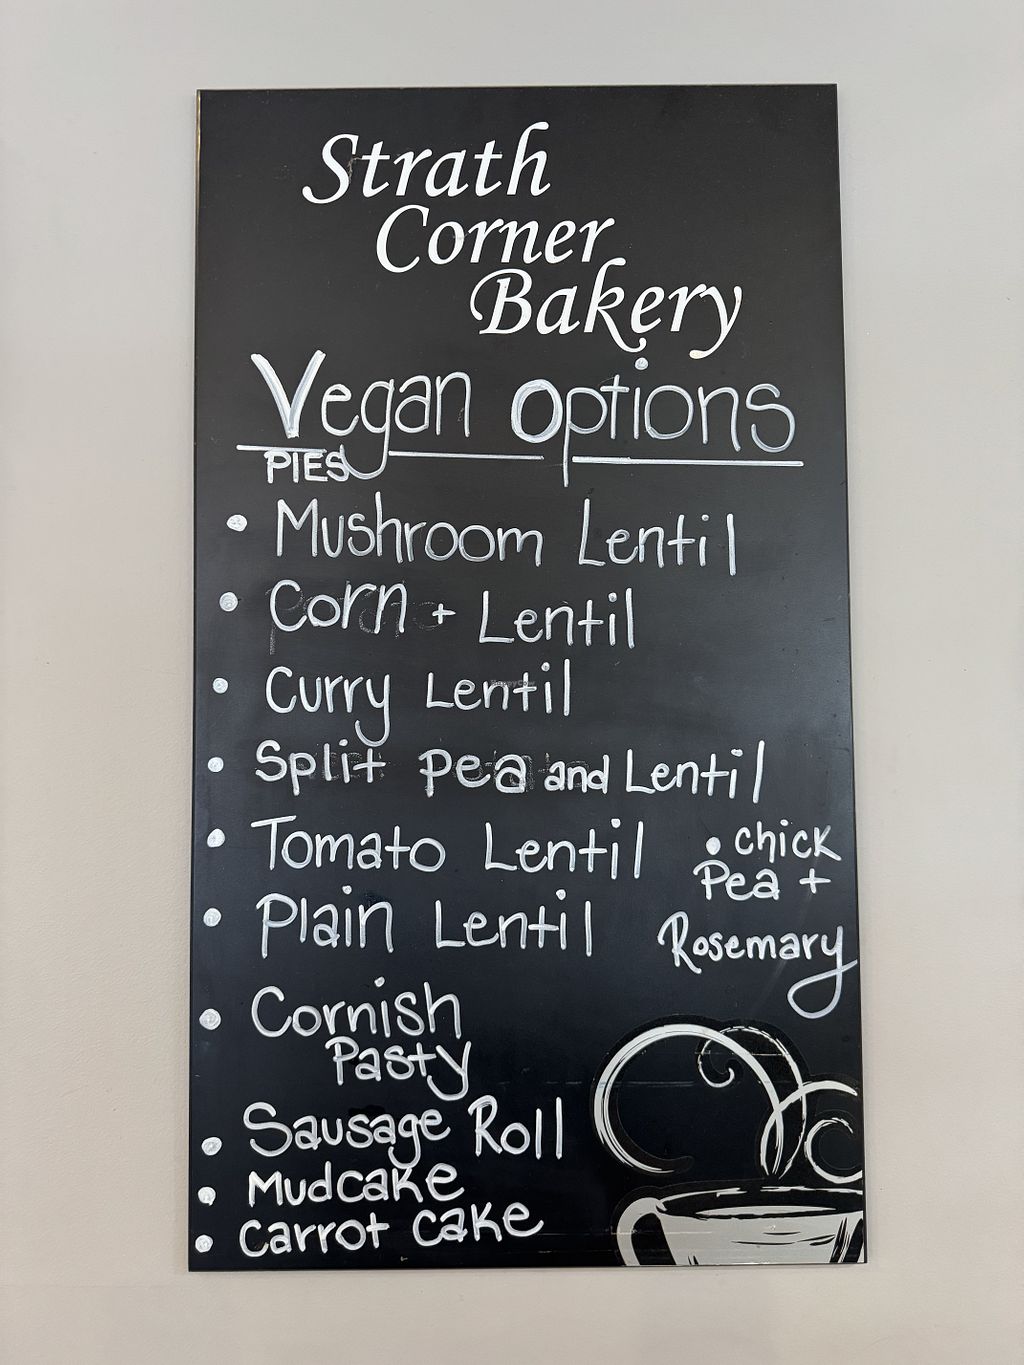 Strath
Corner
Bakery
Vegan Options
PIES
• Mushroom Lentil
• Corn + Lentil
• Curry Lentil
HappyCow
• Split Pea and Lentil
• Tomato Lentil
• Plain Lentil
• Chick
Pea +
Rosemary
• Cornish
Pasty
• Sausage Roll
• Mudcake
• Carrot Cake